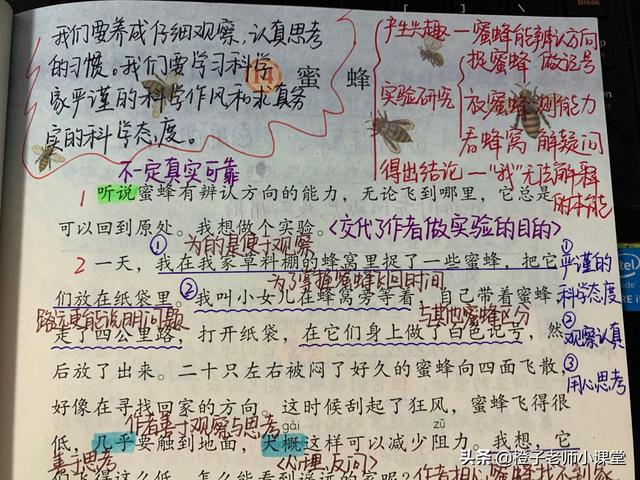 我们要养成仔细观察，认真思考
的习惯。我们要学习科学
家严谨的科学作风和求真务
实的科学态度。
蜜蜂
产生兴趣—蜜蜂能辨认方向
捉蜜蜂 做记号
实验研究
放蜜蜂 测能力
看蜂窝 解疑问
得出结论—“我”无法解释
的本能
不一定真实可靠
1 听说蜜蜂有辨认方向的能力，无论飞到哪里，它总是
可以回到原处。我想做个实验。<交代了作者做实验的目的>
①为的是便于观察
2 一天，我在我家草料棚的蜂窝里捉了一些蜜蜂，把它
①严谨的
科学态度
为了掌握蜜蜂飞回时间
们放在纸袋里。②我叫小女儿在蜂窝旁等着，自己带着蜜蜂
路远更能说明问题
与其他蜜蜂区分
走了四公里路，打开纸袋，在它们身上做了白色记号，然
②观察认真
后放了出来。二十只左右被闷了好久的蜜蜂向四面飞散，
③用心思考
好像在寻找回家的方向。这时候刮起了狂风，蜜蜂飞得很
作者善于观察与思考
gài
zǔ
低，几乎要触到地面，大概这样可以减少阻力。我想，它
善于思考
<心理、反问>
们飞得这么低，怎么能看到遥远的家呢？
头条 @橙子老师小课堂
intel